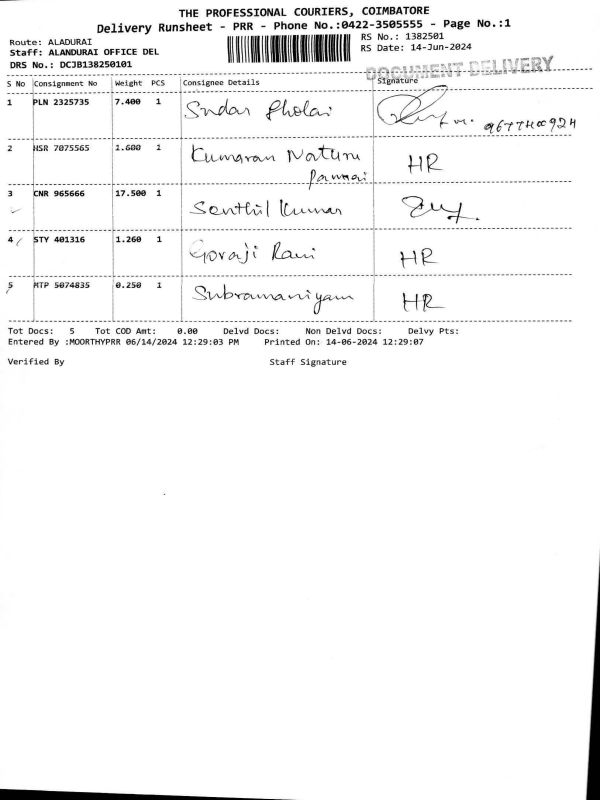 THE PROFESSIONAL COURIERS, COIMBATORE
Delivery Runsheet - PRR - Phone No.:0422-3505555 - Page No.:1
Route: ALADURAI
RS No.: 1382501
Staff: ALANDURAI OFFICE DEL
RS Date: 14-Jun-2024
DRS No.: DCJB138250101
DOCUMENT DELIVERY
S No Consignment No Weight PCS Consignee Details Signature
1 PLN 2325735 7.400 1 Sudar Pholai
2 HSR 7075565 1.600 1 Kumaran Nature HR
3 CNR 965666 17.500 1 Senthil Kumar
4 STY 401316 1.260 1 Govaji Rani HR
5 MTP 5074835 0.250 1 Subramaniyam HR
Tot Docs: 5 Tot COD Amt: 0.00 Delvd Docs: Non Delvd Docs: Delvy Pts:
Entered By :MOORTHYPRR 06/14/2024 12:29:03 PM Printed On: 14-06-2024 12:29:07
Verified By Staff Signature